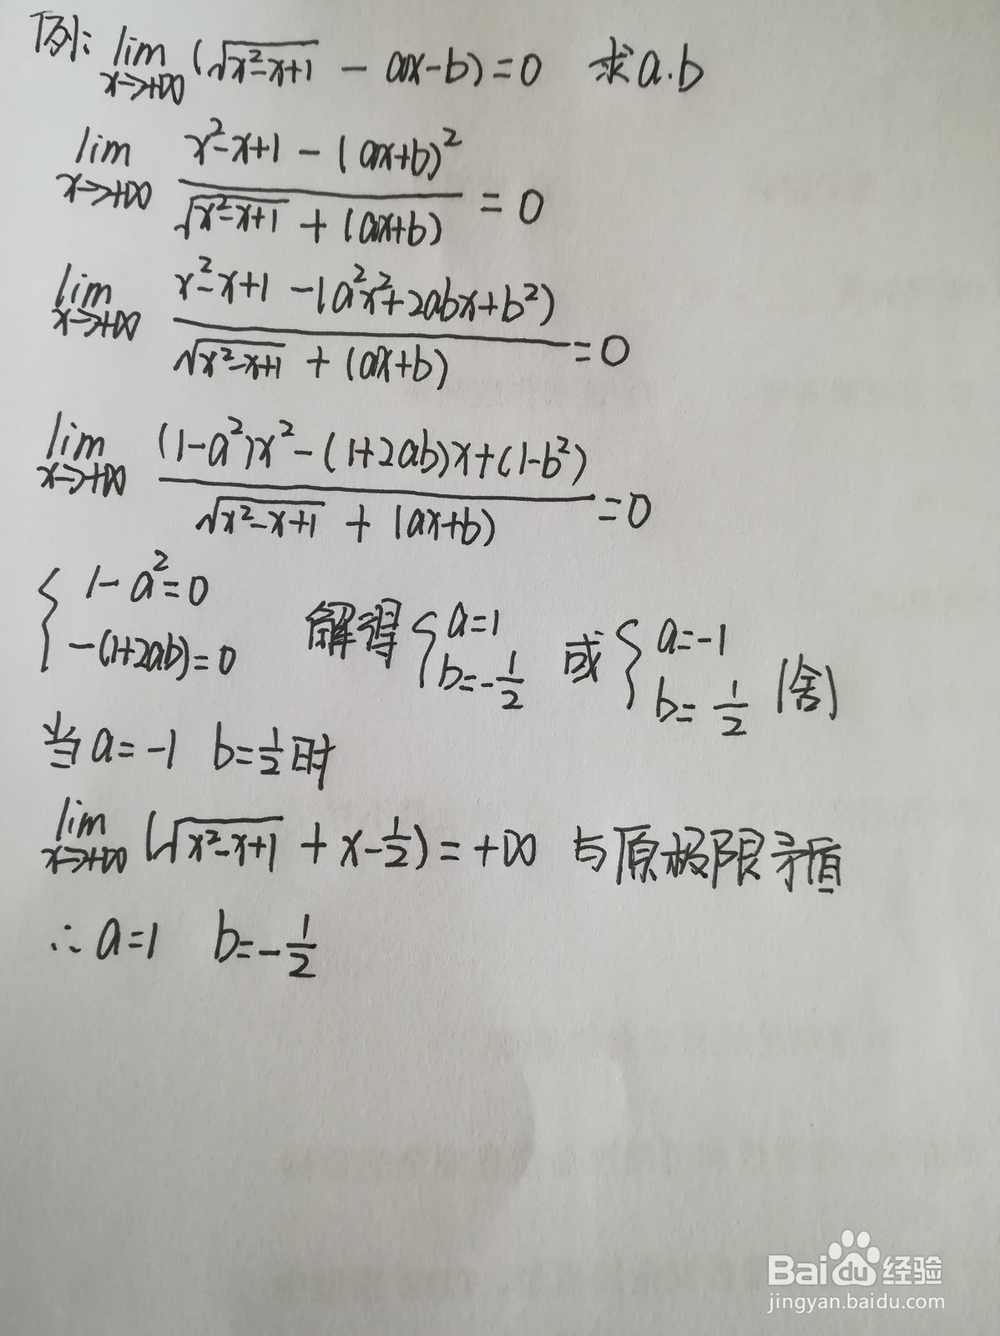 例: lim x→+∞ (√(x²-x+1) - ax-b)=0 求a.b
lim x→+∞ (x²-x+1-(ax+b)²)/(√(x²-x+1)+(ax+b)) =0
lim x→+∞ (x²-x+1-(a²x²+2abx+b²))/(√(x²-x+1)+(ax+b)) =0
lim x→+∞ ((1-a²)x²-(1+2ab)x+(1-b²))/(√(x²-x+1)+(ax+b)) =0
{ 1-a²=0 -(1+2ab)=0 解得 { a=1 b=-1/2 或 { a=-1 b=1/2 (舍)
当a=-1 b=1/2时
lim x→+∞ (√(x²-x+1)+x-1/2)=+∞ 与原极限矛盾
∴a=1 b=-1/2
Baidu经验
jingyan.baidu.com